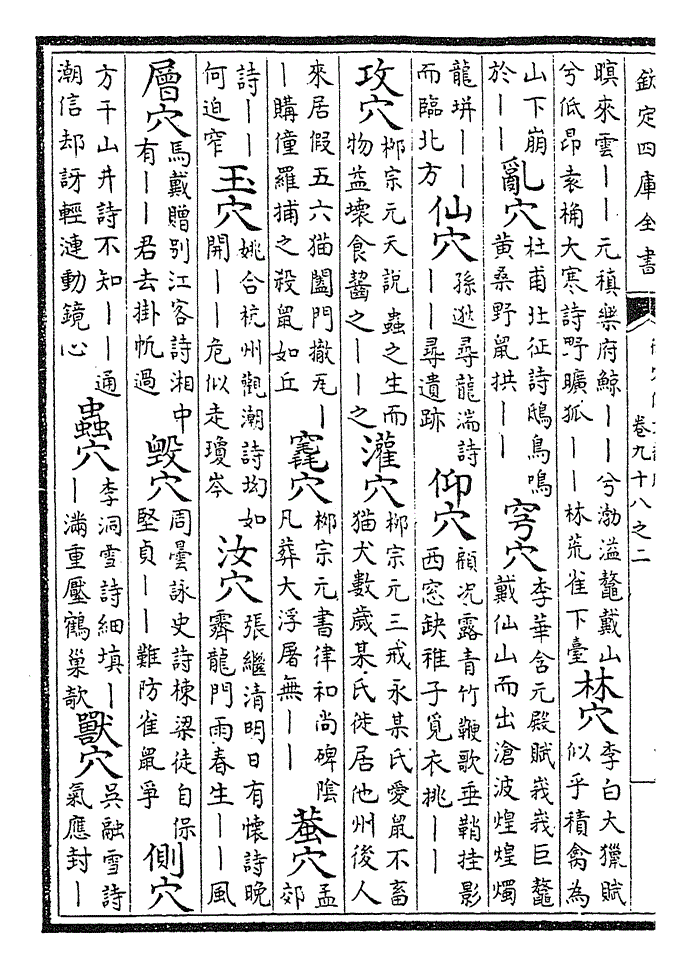 欽定四庫全書
卷九十八之二
暝來雲丨丨元稹樂府鯨丨丨兮渤溢鼇戴山兮低昂袁桷大寒詩野曠狐丨丨林荒雀下臺林穴李白大獵賦似乎積禽為
山下崩於丨丨亂穴杜甫北征詩鴟鳥鳴黄桑野鼠拱丨丨穹穴李華含元殿賦峩峩巨鼇戴仙山而出滄波煌煌燭
龍垪丨丨而臨北方仙穴孫逖尋龍湍詩丨丨尋遺跡仰穴顧况露青竹鞭歌垂鞘挂影西窓缺稚子覓衣挑丨丨
攻穴柳宗元天說蟲之生而物益壞食齧之丨丨之灌穴柳宗元三戒永某氏愛鼠不畜猫犬數歲某氏徙居他州後人
來居假五六猫闔門撤瓦丨丨購僮羅捕之殺鼠如丘竁穴柳宗元書律和尚碑陰凡葬大浮屠無丨丨蛬穴孟郊
詩丨丨何迫窄玉穴姚合杭州觀潮詩坳如開丨丨危似走瓊岑汝穴張繼清明日有懷詩晚霽龍門雨春生丨丨風
層穴馬戴贈别江客詩湘中有丨丨君去掛帆過毁穴周曇詠史詩棟梁徒自保堅貞丨丨難防雀鼠爭側穴
方干山井詩不知丨丨通潮信却訝輕漣動鏡心蟲穴李洞雪詩細填丨丨滿重壓鶴巢欹獸穴吳融雪詩氣應封丨